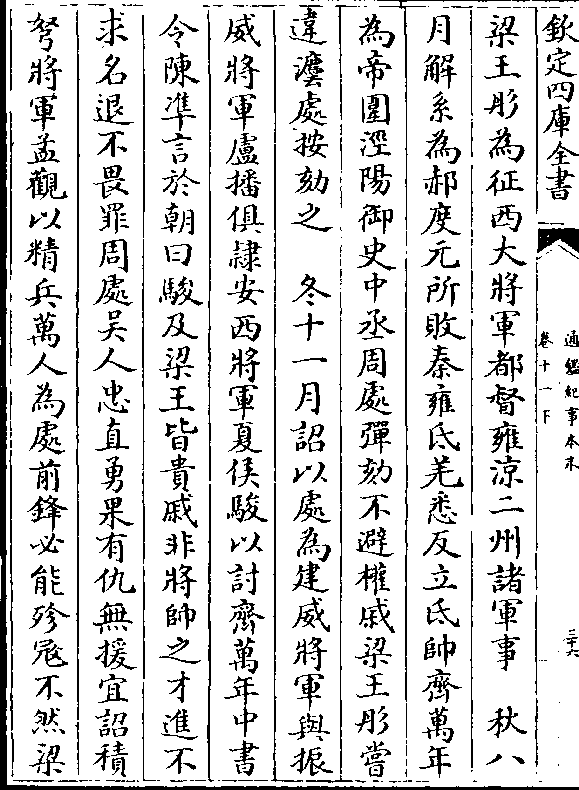 欽定四庫全書
通鑑紀事本末
卷十一下
三十六
梁王肜為征西大將軍都督雍涼二州諸軍事　秋八
月解系為郝度元所敗秦雍氐羌悉反立氐帥齊萬年
為帝圍涇陽御史中丞周處彈劾不避權戚梁王肜嘗
違灋處按劾之　冬十一月詔以處為建威將軍與振
威將軍盧播俱隷安西將軍夏侯駿以討齊萬年中書
令陳凖言於朝曰駿及梁王皆貴戚非將帥之才進不
求名退不畏罪周處吳人忠直勇果有仇無援宜詔積
弩將軍孟觀以精兵萬人為處前鋒必能殄冦不然梁